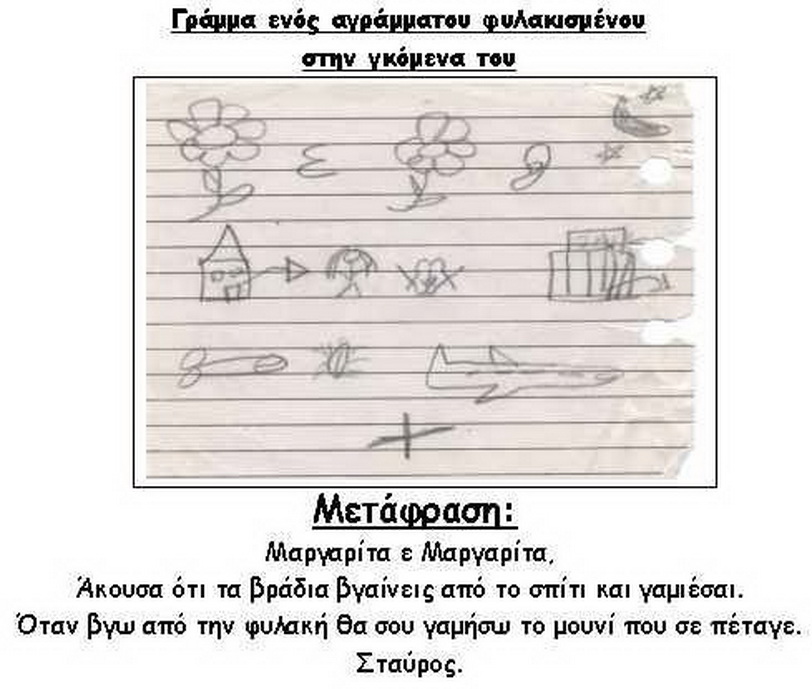 Γράμμα ενός αγράμματου φυλακισμένου
στην γκόμενα του
ε
,
Μετάφραση:
Μαργαρίτα ε Μαργαρίτα,
Άκουσα ότι τα βράδια βγαίνεις από το σπίτι και γαμιέσαι.
Όταν βγω από την φυλακή θα σου γαμήσω το μουνί που σε πέταγε.
Σταύρος.